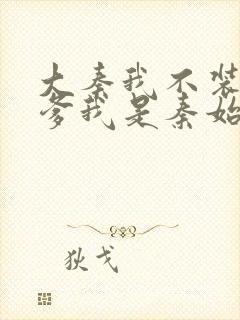 大秦我不装
爹我是秦始
狄戈